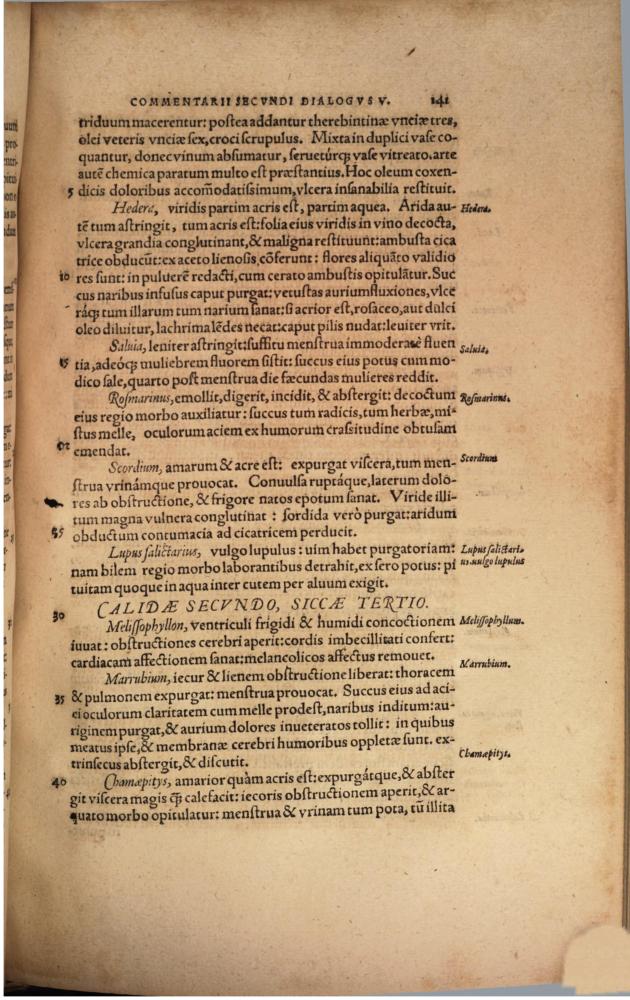 COMMENTARII SECVNDI DIALOGVS V. 141
triduum macerentur: postea addantur therebintinæ vnciæ tres,
olei veteris vnciæ sex, croci scrupulus. Mixta in duplici vase co-
quantur, donec vinum absumatur, seruetúrq; vase vitreato. arte
autē chemica paratum multo est præstantius. Hoc oleum coxen-
5 dicis doloribus accom̄odatissimum, vlcera insanabilia restituit.
Hedera, viridis partim acris est, partim aquea. Arida au- Hedera.
tē tum astringit, tum acris est: folia eius viridis in vino decocta,
vlcera grandia conglutinant, & maligna restituunt: ambusta cica
trice obducūt: ex aceto lienosis cōferunt: flores aliquāto validio
10 res sunt: in puluerē redacti, cum cerato ambustis opitulātur. Suc
cus naribus infusus caput purgat: vetustas auriumfluxiones, vlce
ráq; tum illarum tum narium sanat: si acrior est, rosaceo, aut dulci
oleo diluitur, lachrima lēdes necat: caput pilis nudat: leuiter vrit.
Saluia, leniter astringit: suffitu menstrua immoderatē fluen Saluia.
15 tia, adeóq; muliebrem fluorem sistit: succus eius potus cum mo-
dico sale, quarto post menstrua die fæcundas mulieres reddit.
Rosmarinus, emollit, digerit, incidit, & abstergit: decoctum Rosmarinus.
eius regio morbo auxiliatur: succus tum radicis, tum herbæ, mi-
stus melle, oculorum aciem ex humorum crassitudine obtusam
emendat.
Scordium, amarum & acre est: expurgat viscera, tum men- Scordium
strua vrinámque prouocat. Conuulsa ruptáque, laterum dolo-
res ab obstructione, & frigore natos epotum sanat. Viride illi-
tum magna vulnera conglutinat: sordida verò purgat: aridum
25 obductum contumacia ad cicatricem perducit.
Lupus salictarius, vulgo lupulus: uim habet purgatoriam: Lupus salictari-
nam bilem regio morbo laborantibus detrahit, ex sero potus: pi us. uulgo lupulus
tuitam quoque in aqua inter cutem per aluum exigit.
CALIDÆ SECVNDO, SICCÆ TERTIO.
30 Melissophyllon, ventriculi frigidi & humidi concoctionem Melissophyllum.
iuuat: obstructiones cerebri aperit: cordis imbecillitati confert:
cardiacam affectionem sanat: melancolicos affectus remouet.
Marrubium, iecur & lienem obstructione liberat: thoracem Marrubium.
35 & pulmonem expurgat: menstrua prouocat. Succus eius ad aci-
ei oculorum claritatem cum melle prodest, naribus inditum: au-
riginem purgat, & aurium dolores inueteratos tollit: in quibus
meatus ipse, & membranæ cerebri humoribus oppletæ sunt. ex-
trinsecus abstergit, & discutit. Chamæpitys.
40 Chamæpitys, amarior quàm acris est: expurgátque, & abster
git viscera magis q̃ calefacit: iecoris obstructionem aperit, & ar-
quato morbo opitulatur: menstrua & vrinam tum pota, tū illita